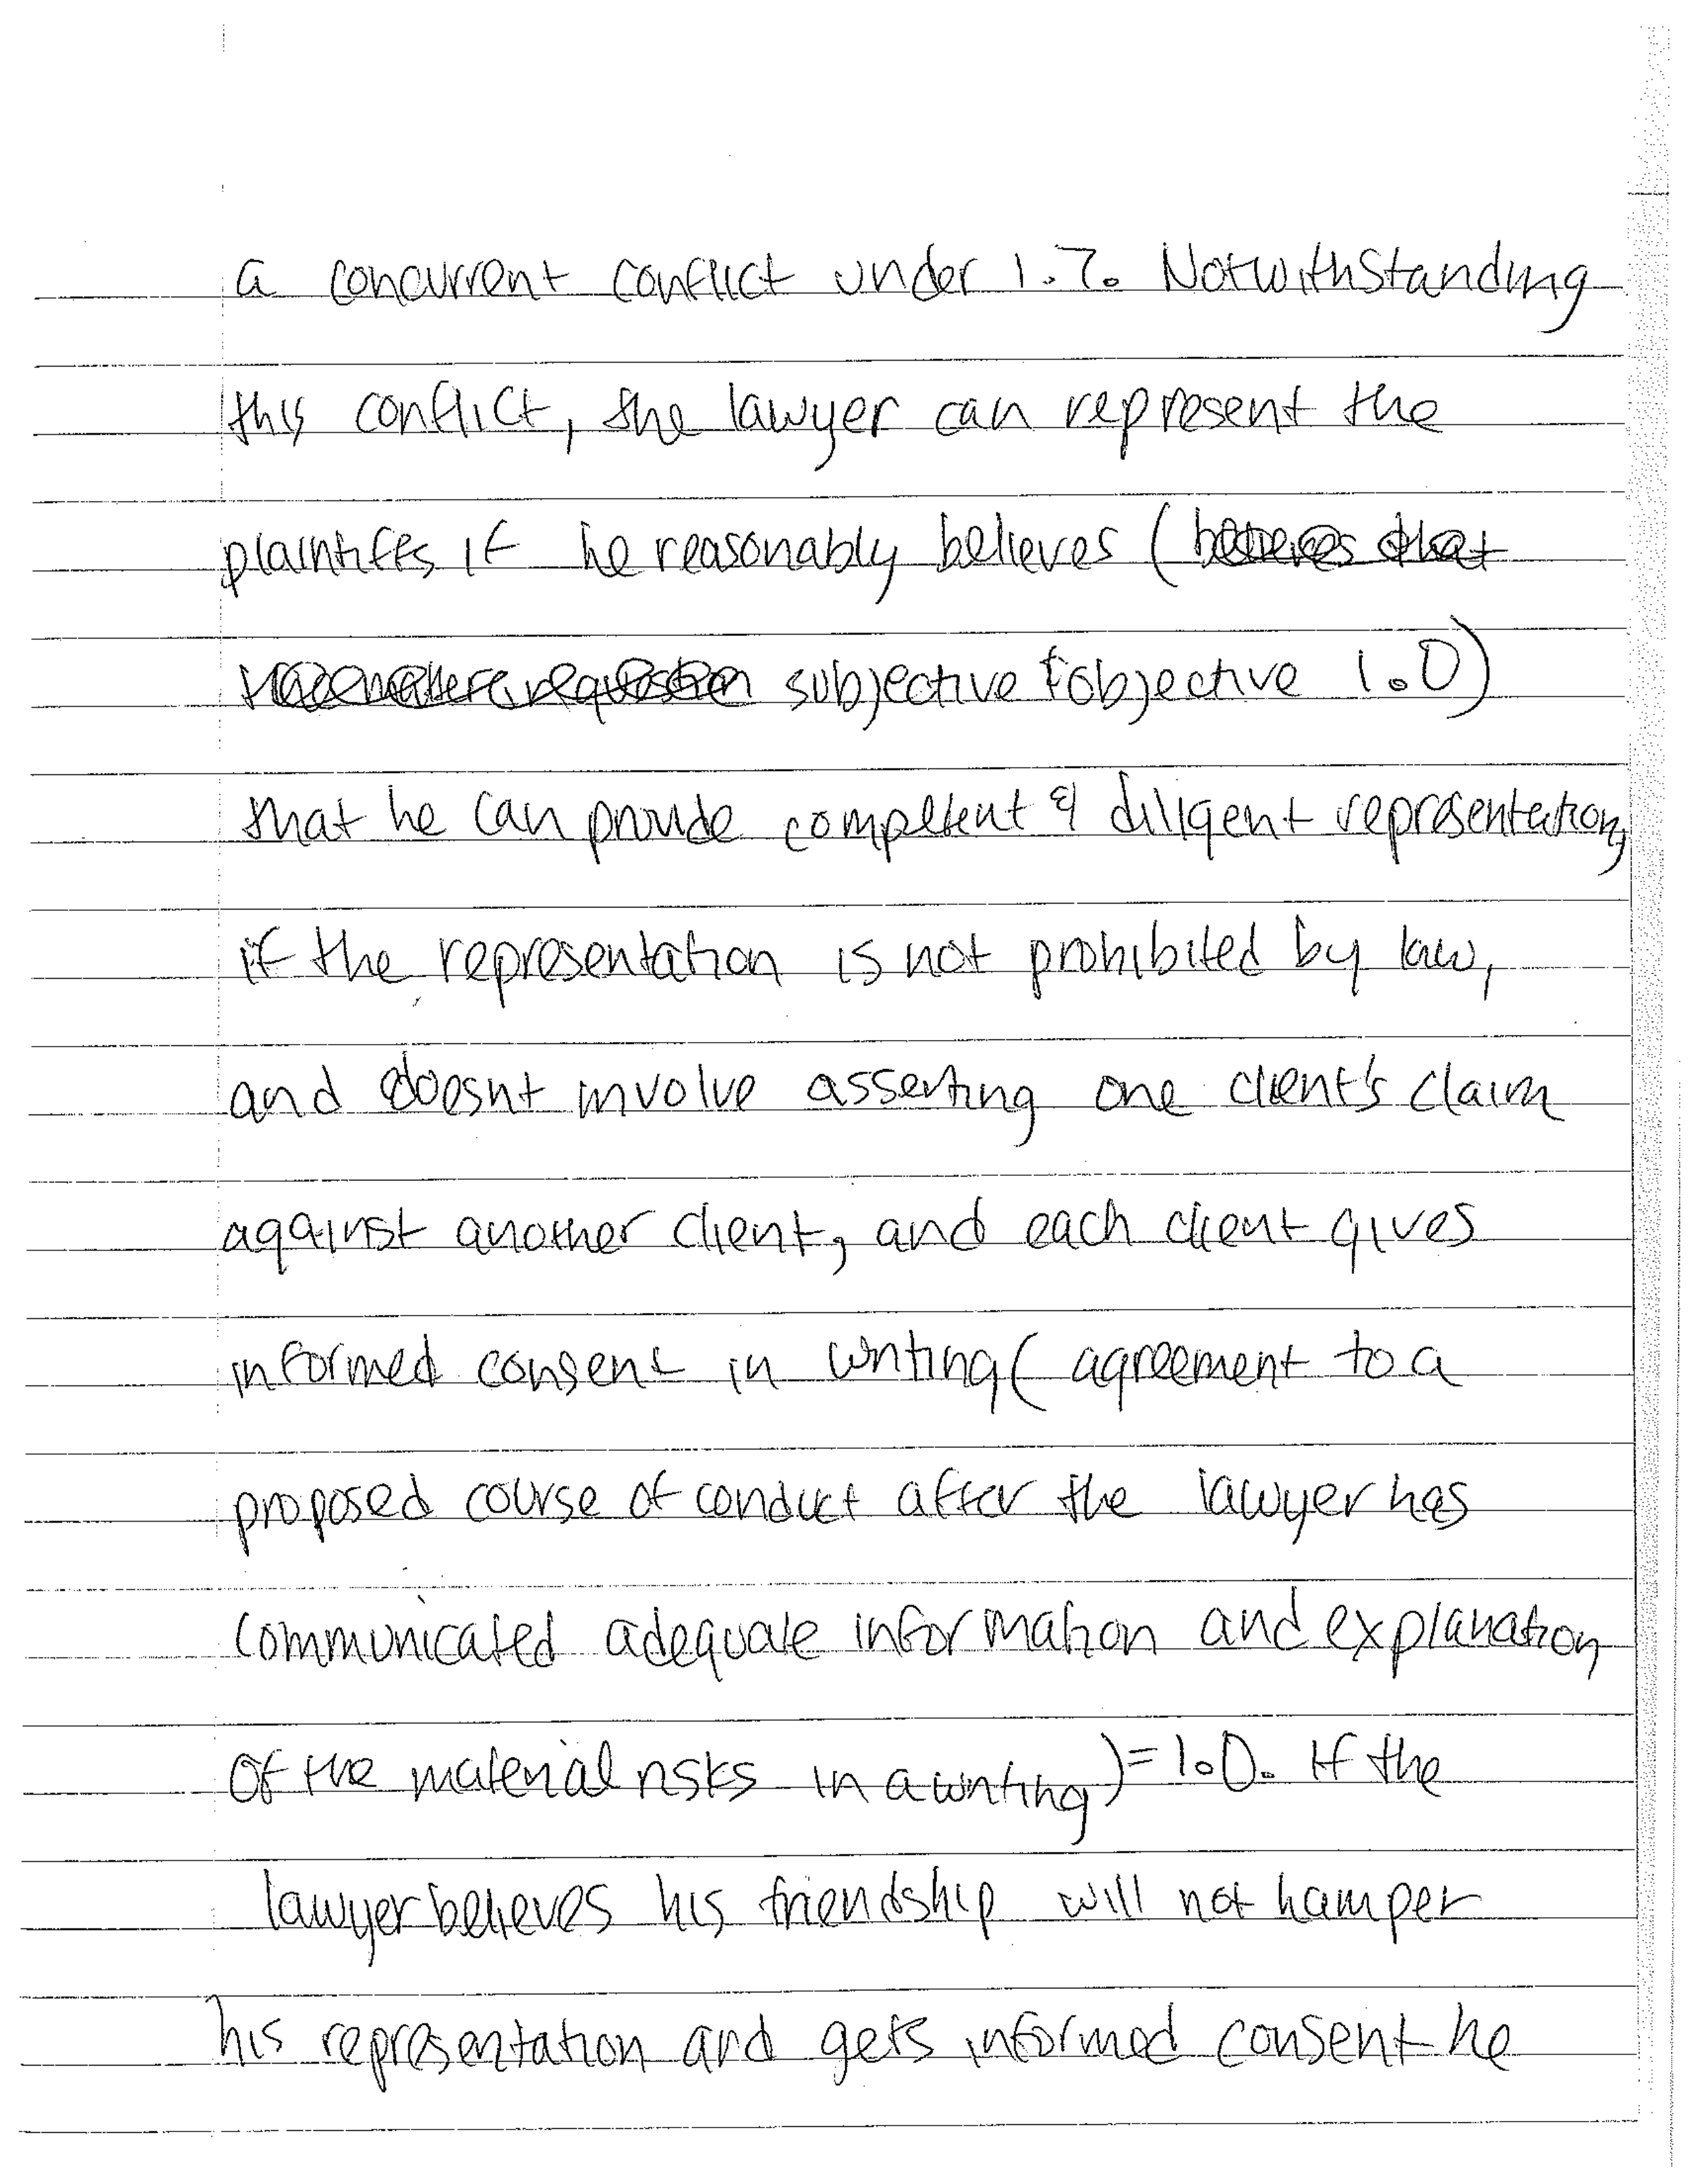 a concurrent conflict under 1.7. Notwithstanding
this conflict, the lawyer can represent the
plaintiffs if he reasonably believes (
subjective & objective 1.0)
that he can provide competent & diligent representation,
if the representation is not prohibited by law,
and doesnt involve asserting one client's claim
against another client, and each client gives
informed consent in writing (agreement to a
proposed course of conduct after the lawyer has
communicated adequate information and explanation
of the material risks in a writing) = 1.0. If the
lawyer believes his friendship will not hamper
his representation and gets informed consent he